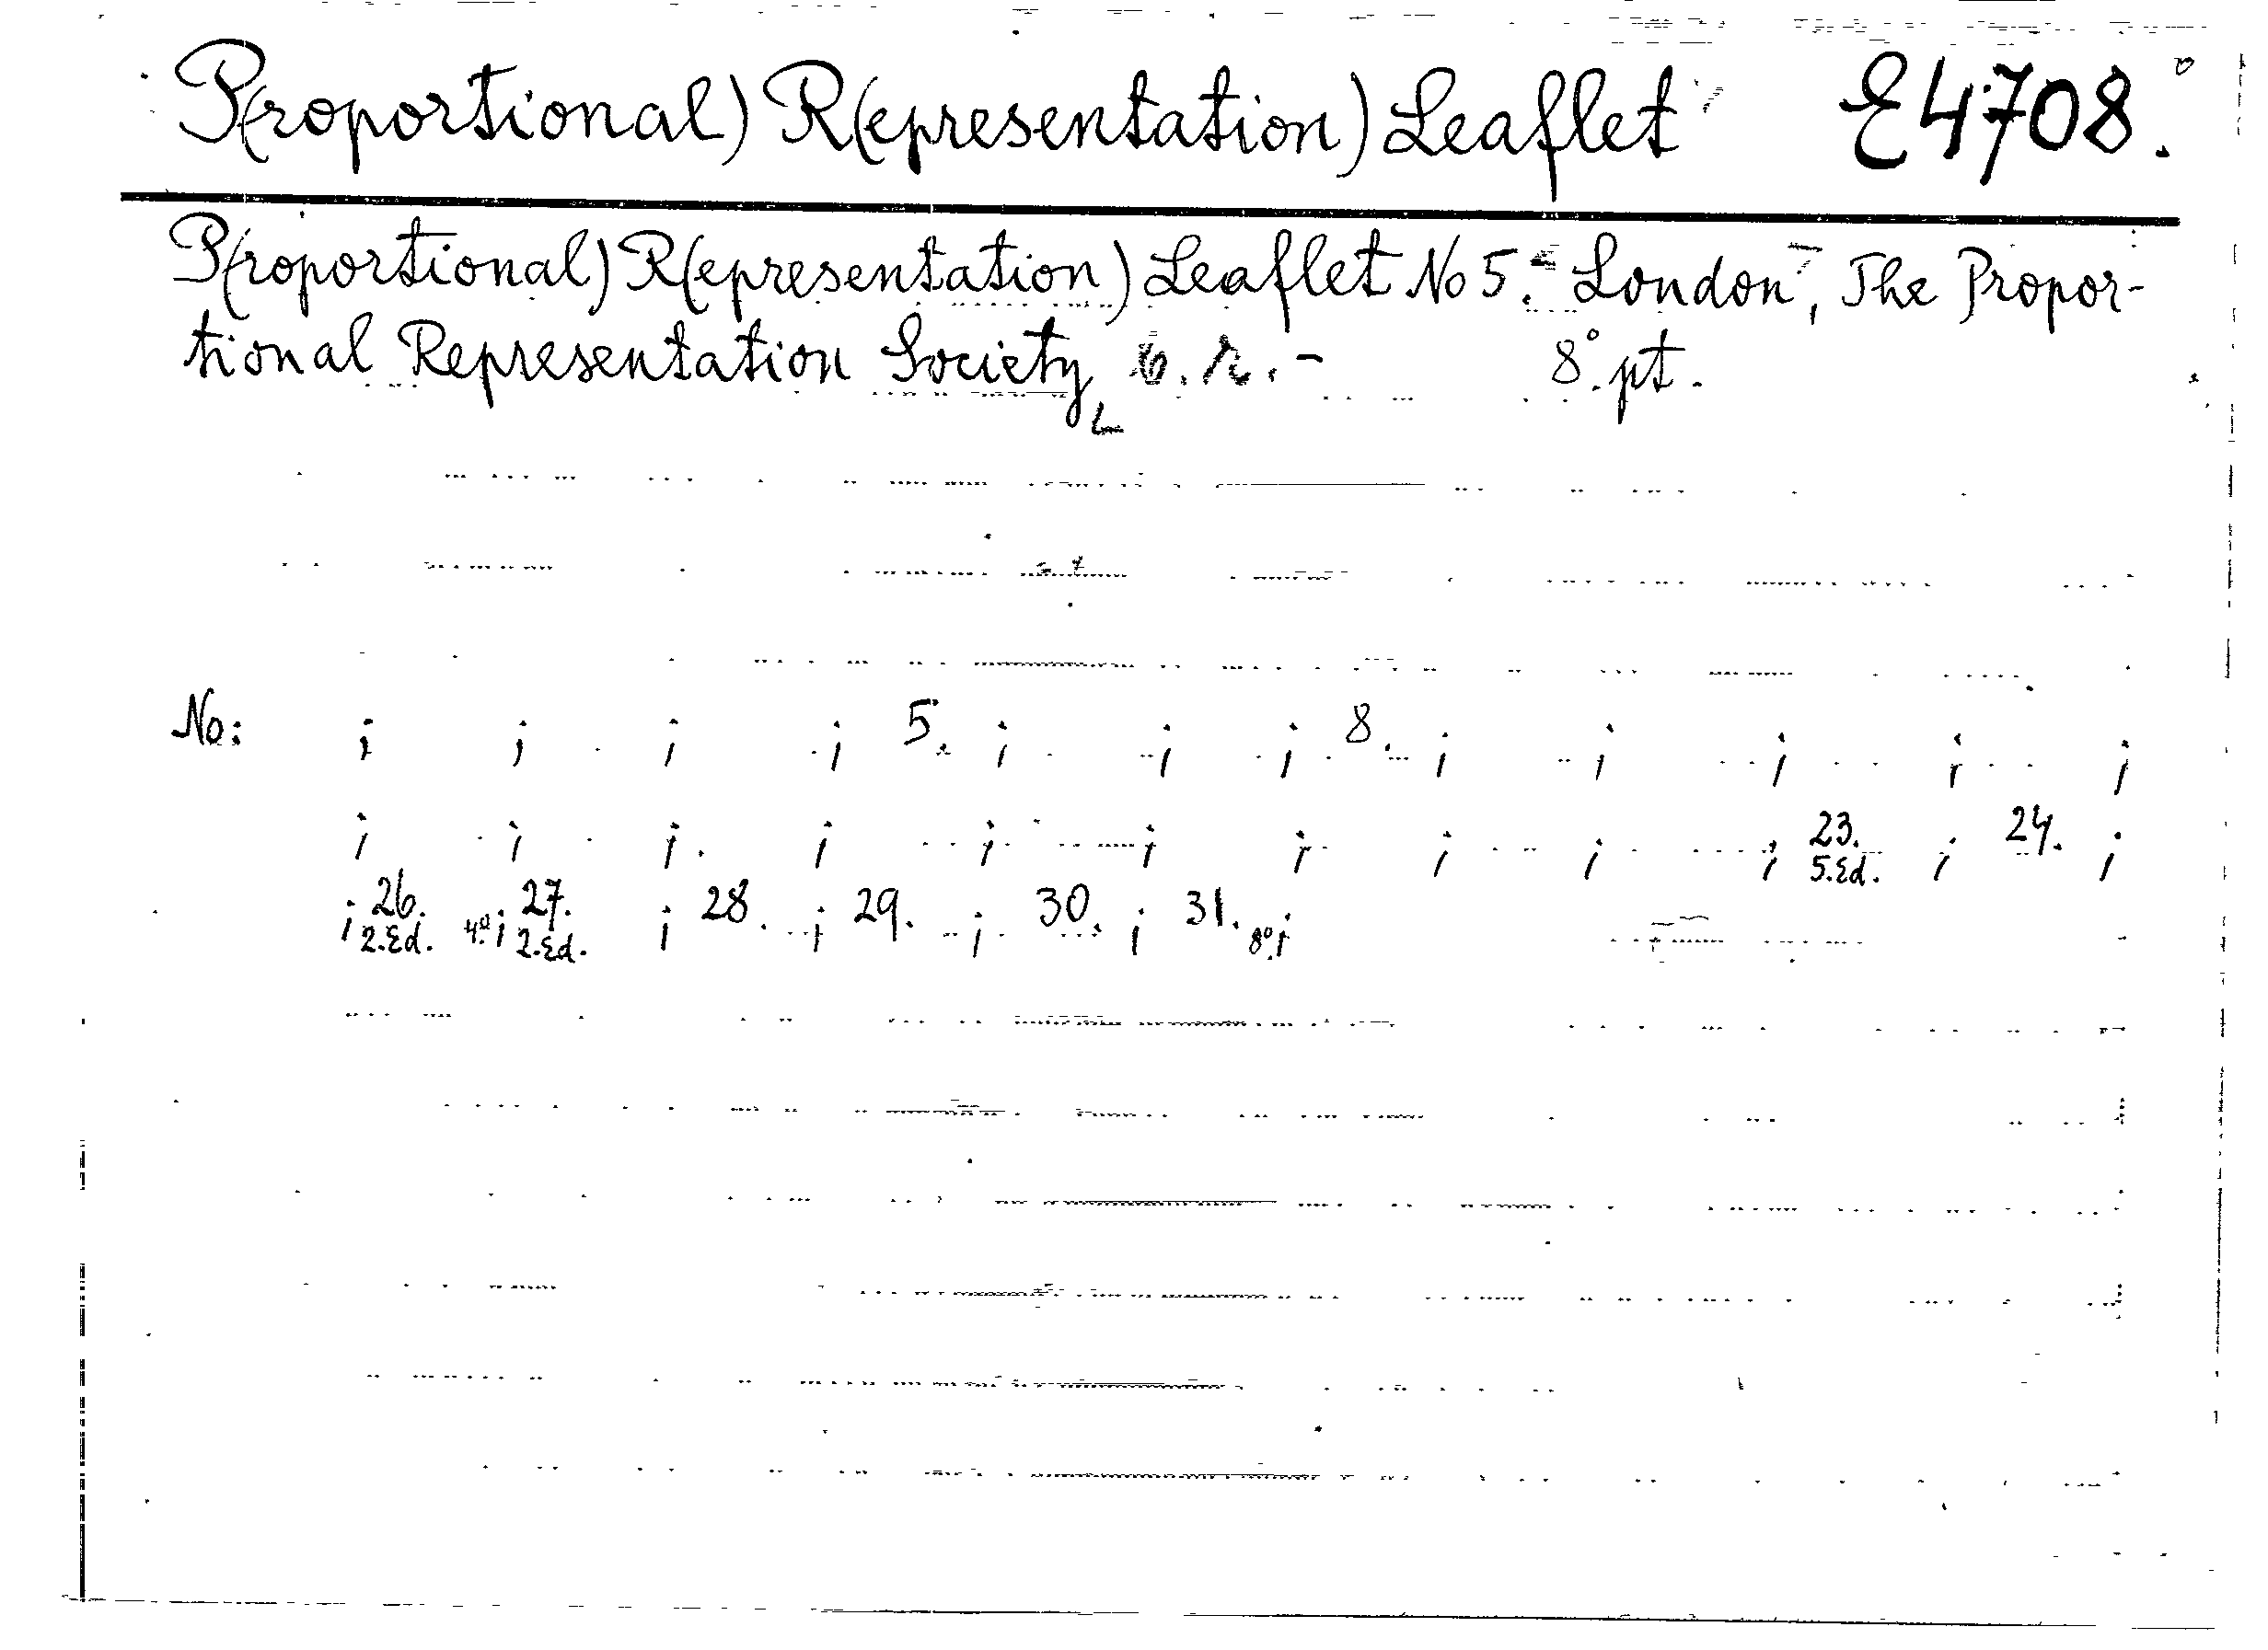 P(roportional) R(epresentation) Leaflet E4708.
P(roportional) R(epresentation) Leaflet No 5. London, The Propor-
tional Representation Society, 8° pt.
No: ; ; ; ; 5. ; ; ; 8. ; ; ; ; ;
; ; ; ; ; ; ; ; ; ; 23. 5.Ed. ; 24. ;
; 26. 2.Ed. 4° ; 27. 2.Ed. ; 28. ; 29. ; 30. ; 31. 8° ;